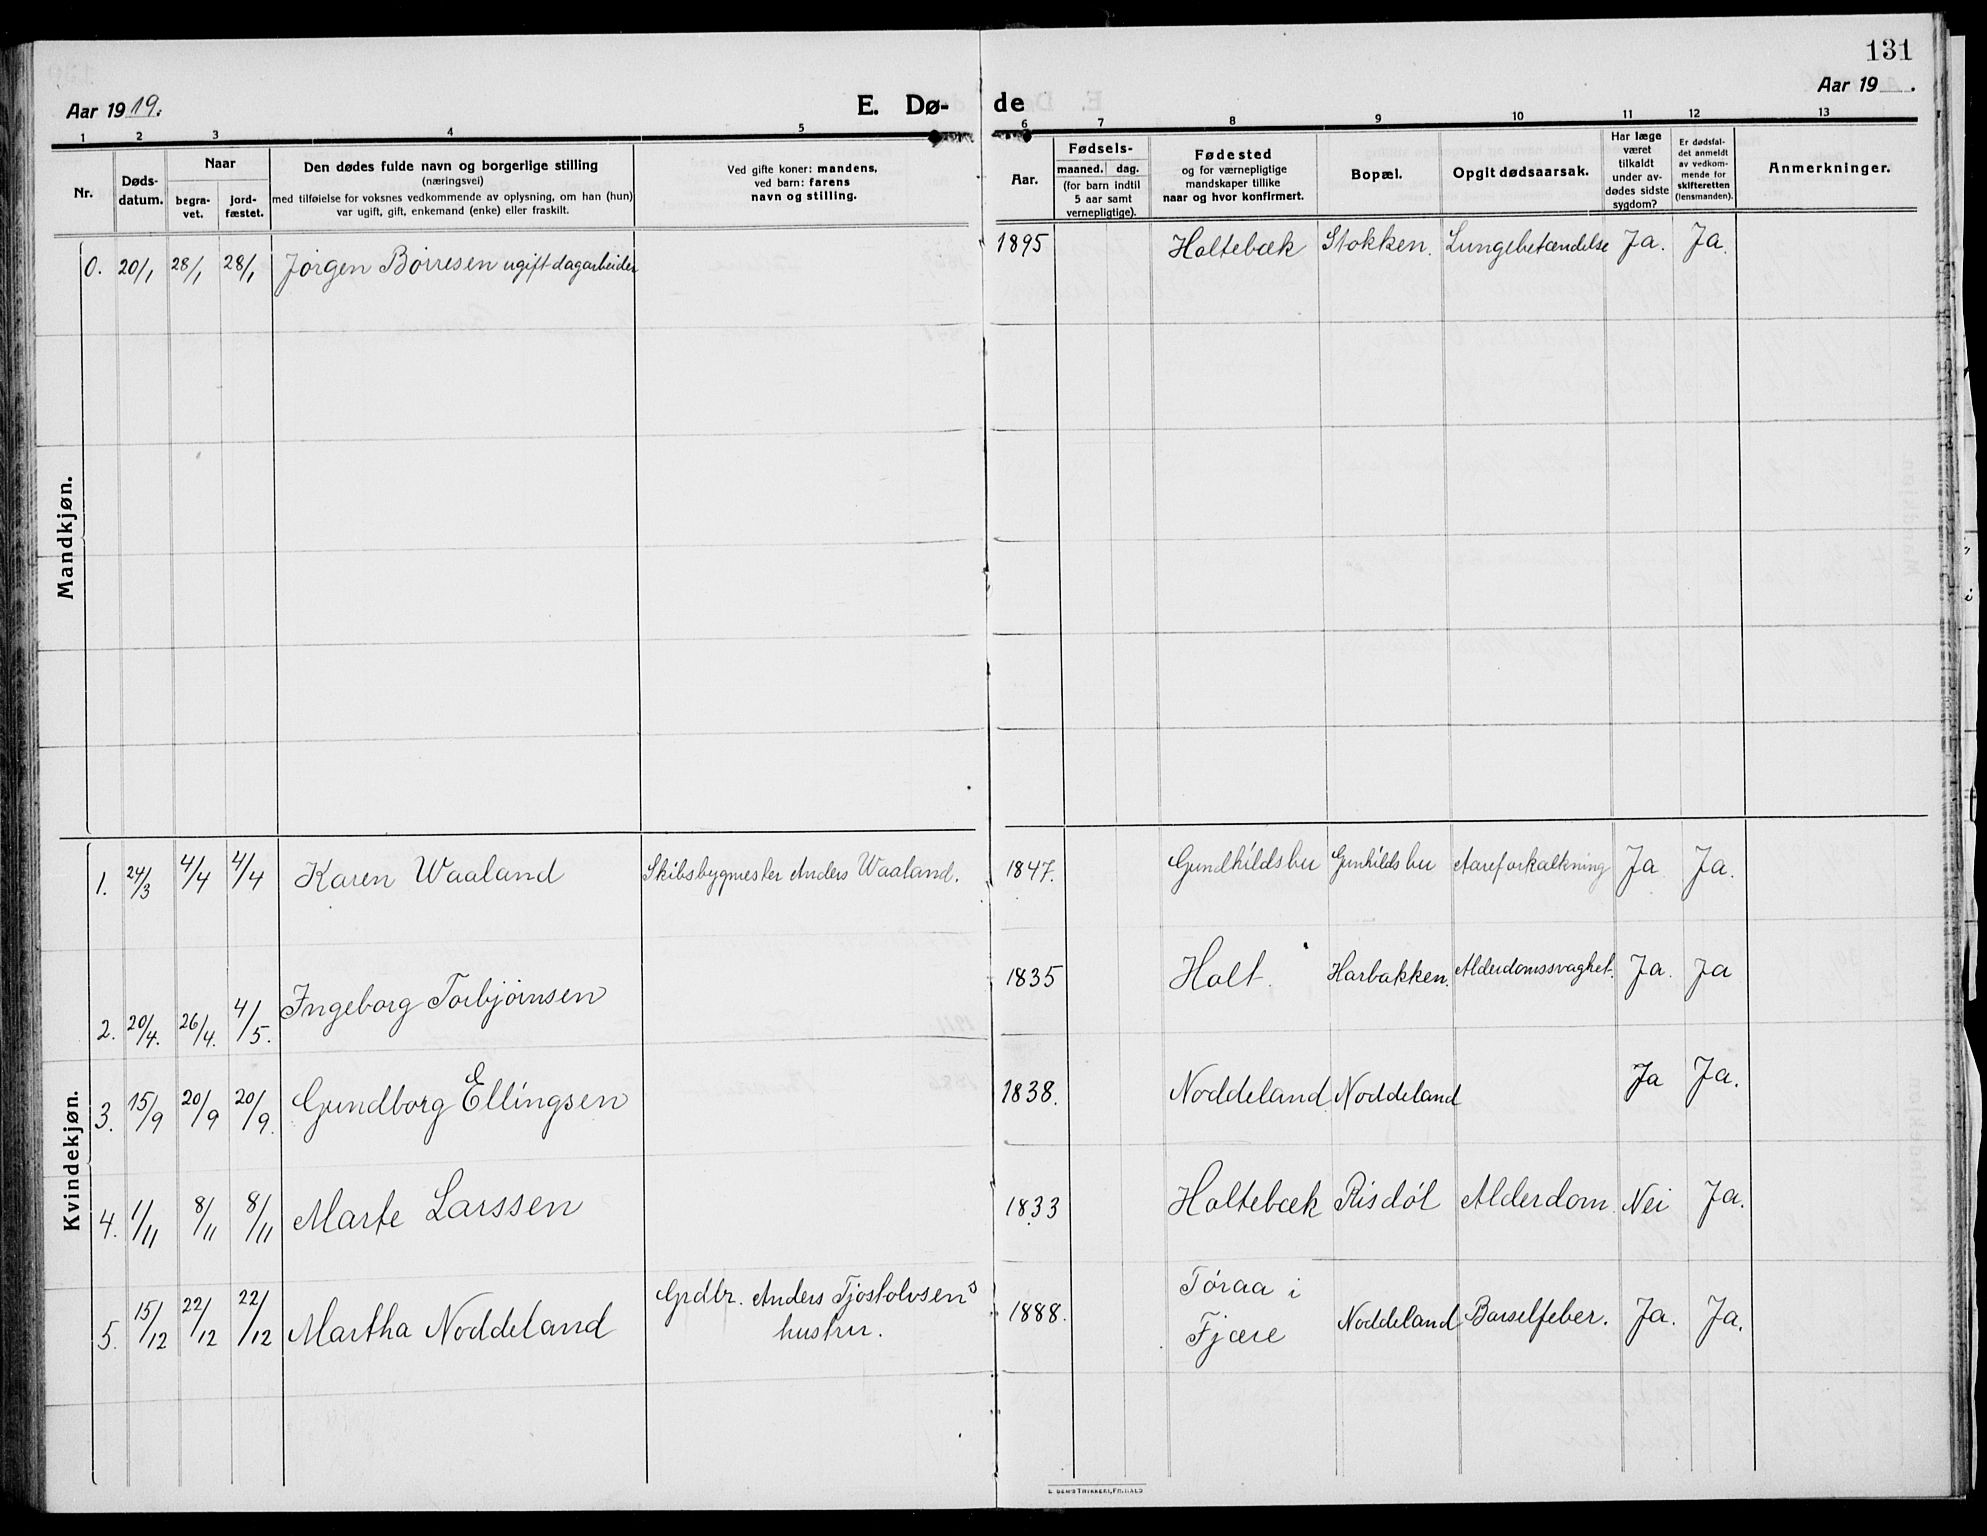 131
Aar 1919.
E. Dø-
de
Aar 19 .
1 2 3 4 5 6 7 8 9 10 11 12 13
Nr.
Døds-
datum.
Naar
begra-
vet.
jord-
fæstet.
Den dødes fulde navn og borgerlige stilling
(næringsvei)
med tilføielse for voksnes vedkommende av oplysning, om han (hun)
var ugift, gift, enkemand (enke) eller fraskilt.
Ved gifte koner: mandens,
ved barn: farens
navn og stilling.
Aar.
Fødsels-
maaned. dag.
(for barn indtil
5 aar samt
vernepligtige).
Fødested
og for værnepligtige
mandskaper tillike
naar og hvor konfirmert.
Bopæl.
Opgit dødsaarsak.
Har læge
været
tilkaldt
under av-
dødes sidste
sygdom?
Er dødsfal-
det anmeldt
av vedkom-
mende for
skifteretten
(lensmanden).
Anmerkninger.
Mandkjøn.
0. 20/1 28/1 28/1 Jørgen Børresen ugift dagarbeider 1895 Holtebæk Stokken. Lungebetændelse Ja. Ja.
Kvindekjøn.
1. 24/3 4/4 4/4 Karen Waaland Skibsbygmester Anders Waaland. 1847. Gundhildsbu Gunhildsbu Aareforkalkning Ja. Ja.
2. 20/4. 26/4. 4/5. Ingeborg Torbjørnsen 1835 Holt. Harbakken. Alderdomssvaghet. Ja. Ja
3. 15/9 20/9 20/9. Gundborg Ellingsen 1838. Noddeland Noddeland Ja Ja.
4. 1/11 8/11 8/11 Marte Larssen 1833 Holtebæk Risdøl Alderdom. Nei Ja.
5. 15/12 22/12 22/12 Martha Noddeland Grdbr. Anders Tjostolvsens
hustru. 1888. Tøraa i
Fjære Noddeland Barselfeber. Ja. Ja.